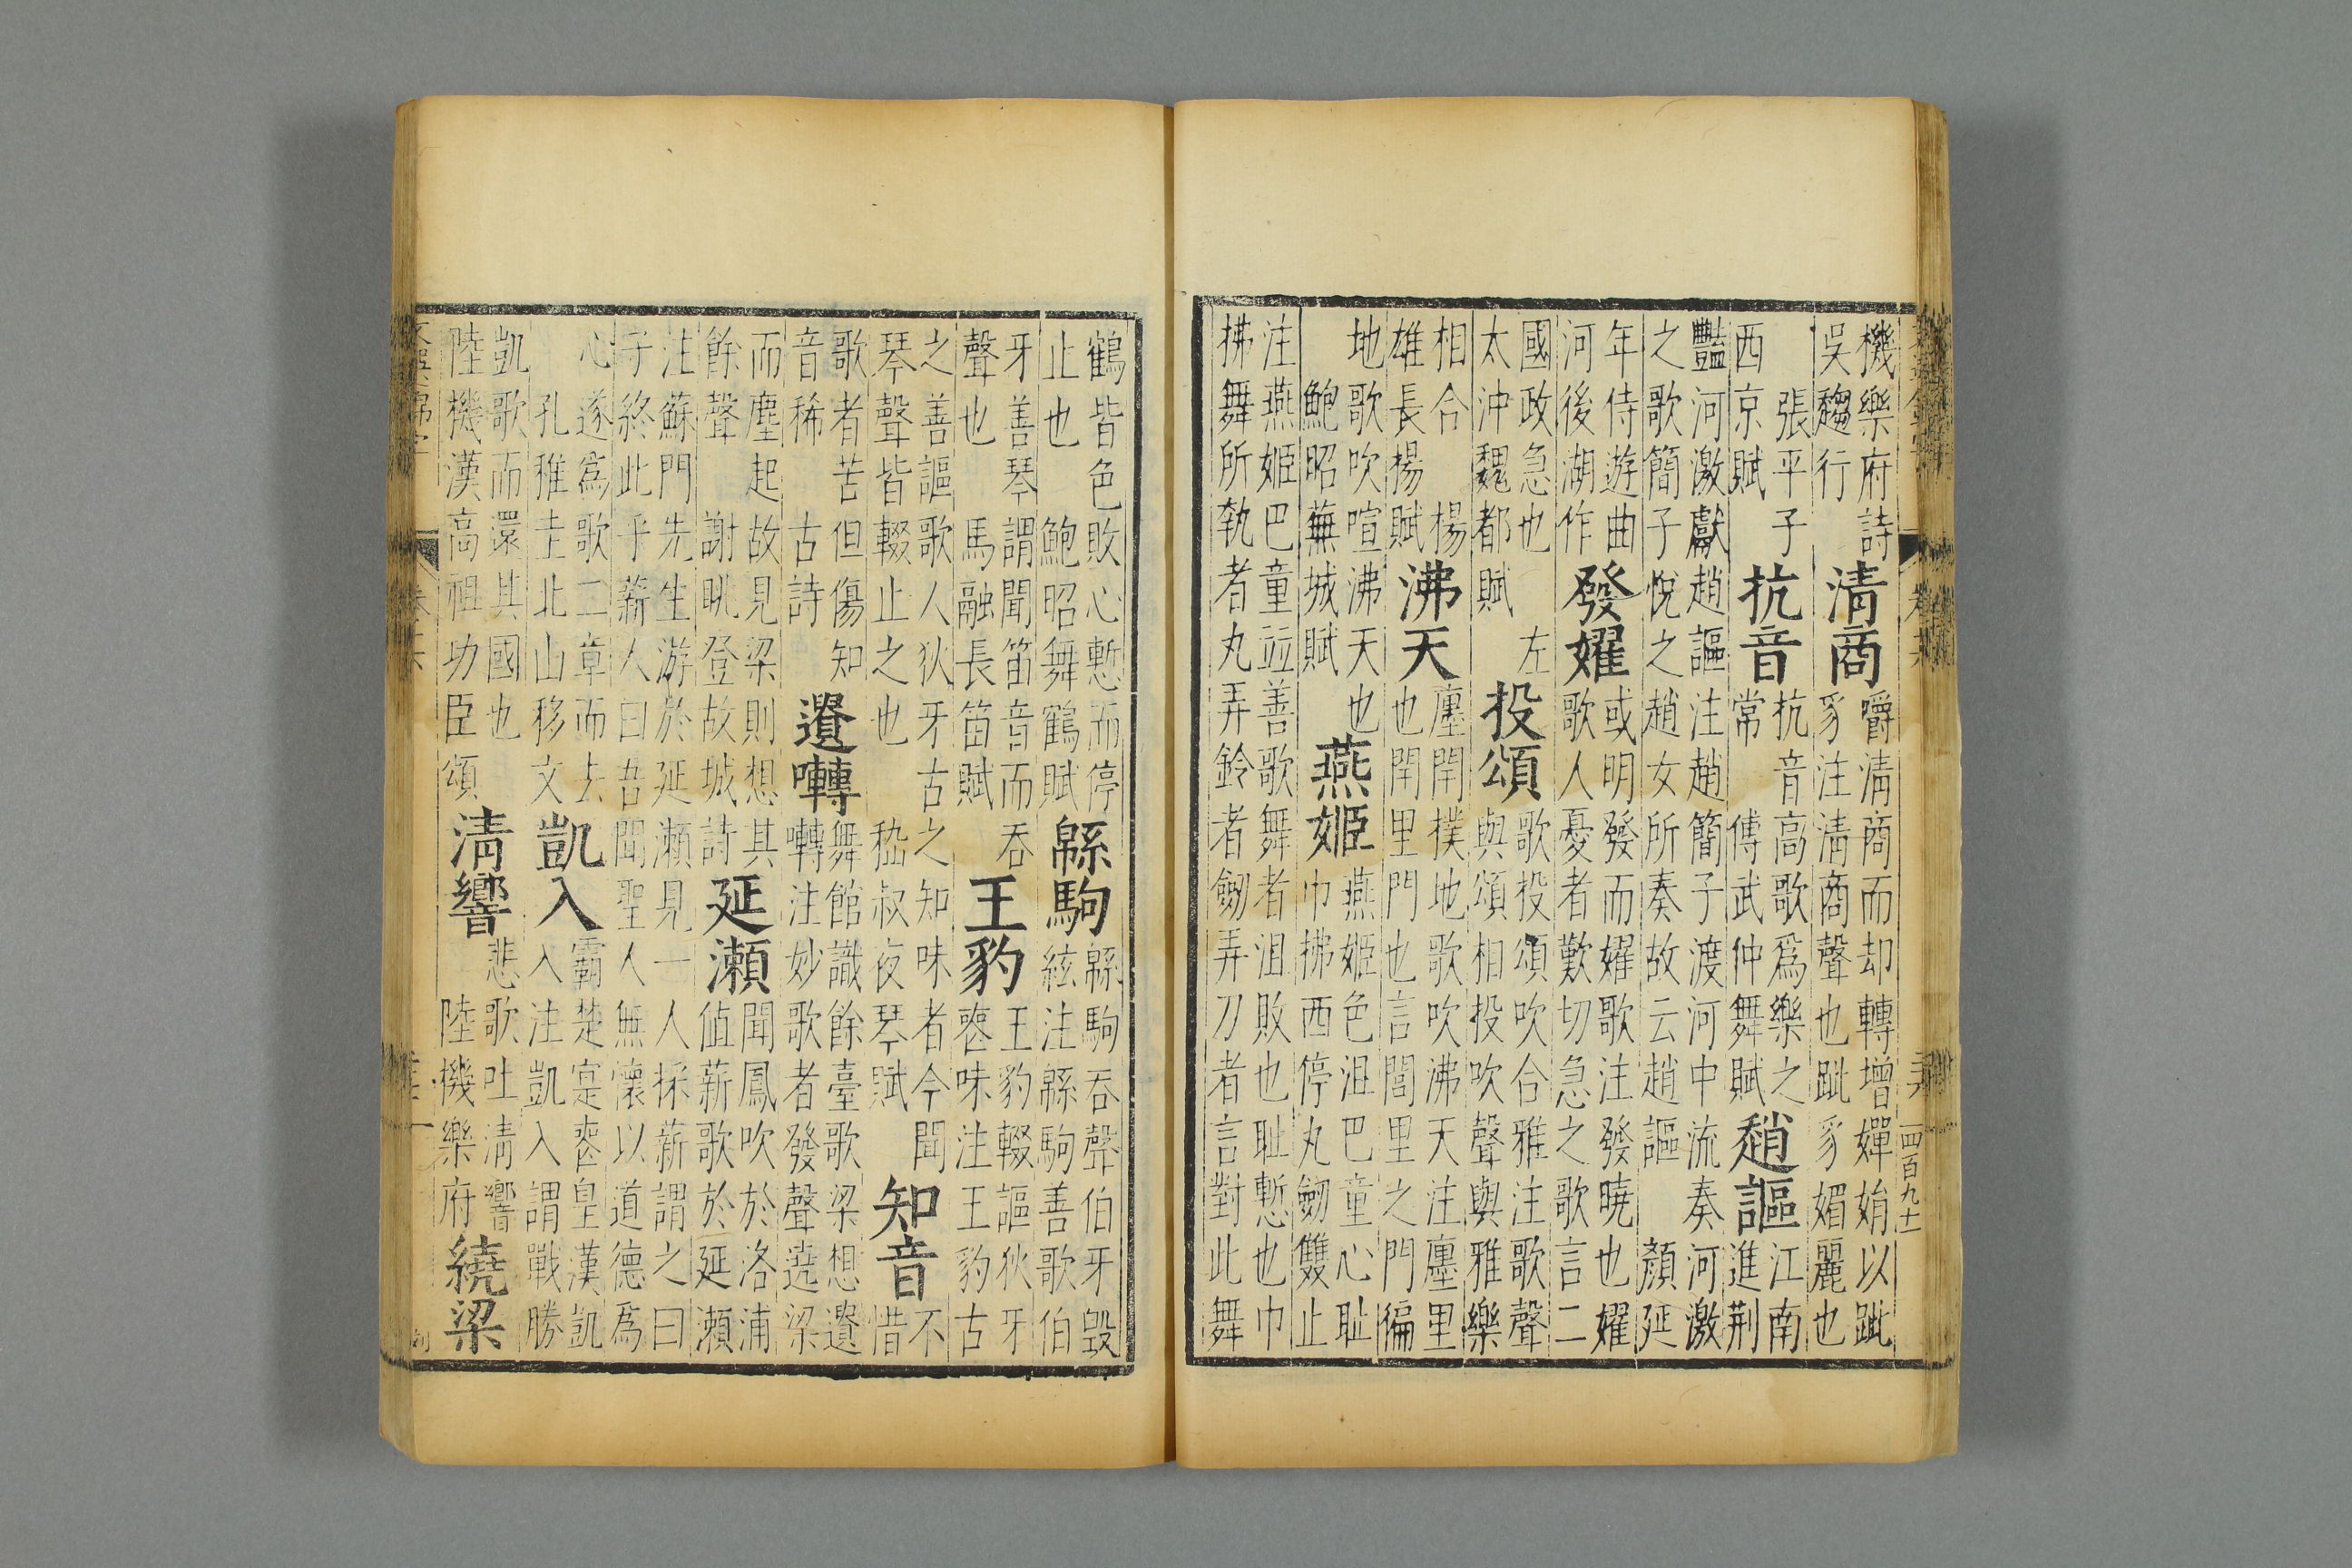 機樂府詩
吳趨行
清商
嚼清商而却轉增嬋娟以䠂
豸注清商聲也䠂豸媚麗也
張平子
西京賦
抗音
抗音高歌爲樂之
常
傅武仲舞賦
趙謳
江南
進荆
豔河激獻趙謳注趙簡子渡河中流奏河激
之歌簡子悅之趙女所奏故云趙謳
顏延
年侍遊曲
河後湖作
發嬥
或明發而嬥歌注發曉也嬥
歌人憂者歎切急之歌言二
國政急也
左
太沖魏都賦
投頌
歌投頌吹合雅注歌聲
與頌相投吹聲與雅樂
相合
楊
雄長楊賦
沸天
廛閈撲地歌吹沸天注廛里
也閈里門也言閭里之門徧
地歌吹喧沸天也
鮑昭蕪城賦
燕姬
燕姬色沮巴童心耻
巾拂西停丸劒雙止
注燕姬巴童並善歌舞者沮敗也耻慙也巾
拂舞所執者丸弄鈴者劒弄刀者言對此舞
鶴皆色敗心慙而停
止也
鮑昭舞鶴賦
緜駒
緜駒吞聲伯牙毀
絃注緜駒善歌伯
牙善琴謂聞笛音而吞
聲也
馬融長笛賦
王豹
王豹輟謳狄牙
喪味注王豹古
之善謳歌人狄牙古之知味者今聞
琴聲皆輟止之也
嵇叔夜琴賦
知音
不
惜
歌者苦但傷知
音稀
古詩
遺囀
舞館識餘臺歌梁想遺
囀注妙歌者發聲遶梁
而塵起故見梁則想其
餘聲
謝眺登故城詩
延瀨
聞鳳吹於洛浦
値薪歌於延瀨
注蘇門先生游於延瀨見一人採薪謂之曰
子終此乎薪人曰吾聞聖人無懷以道德爲
心遂爲歌二章而去
孔稚圭北山移文
凱入
霸楚寔喪皇漢凱
入注凱入謂戰勝
凱歌而還其國也
陸機漢高祖功臣頌
清響
悲歌吐清響
陸機樂府
繞梁
四百九十二